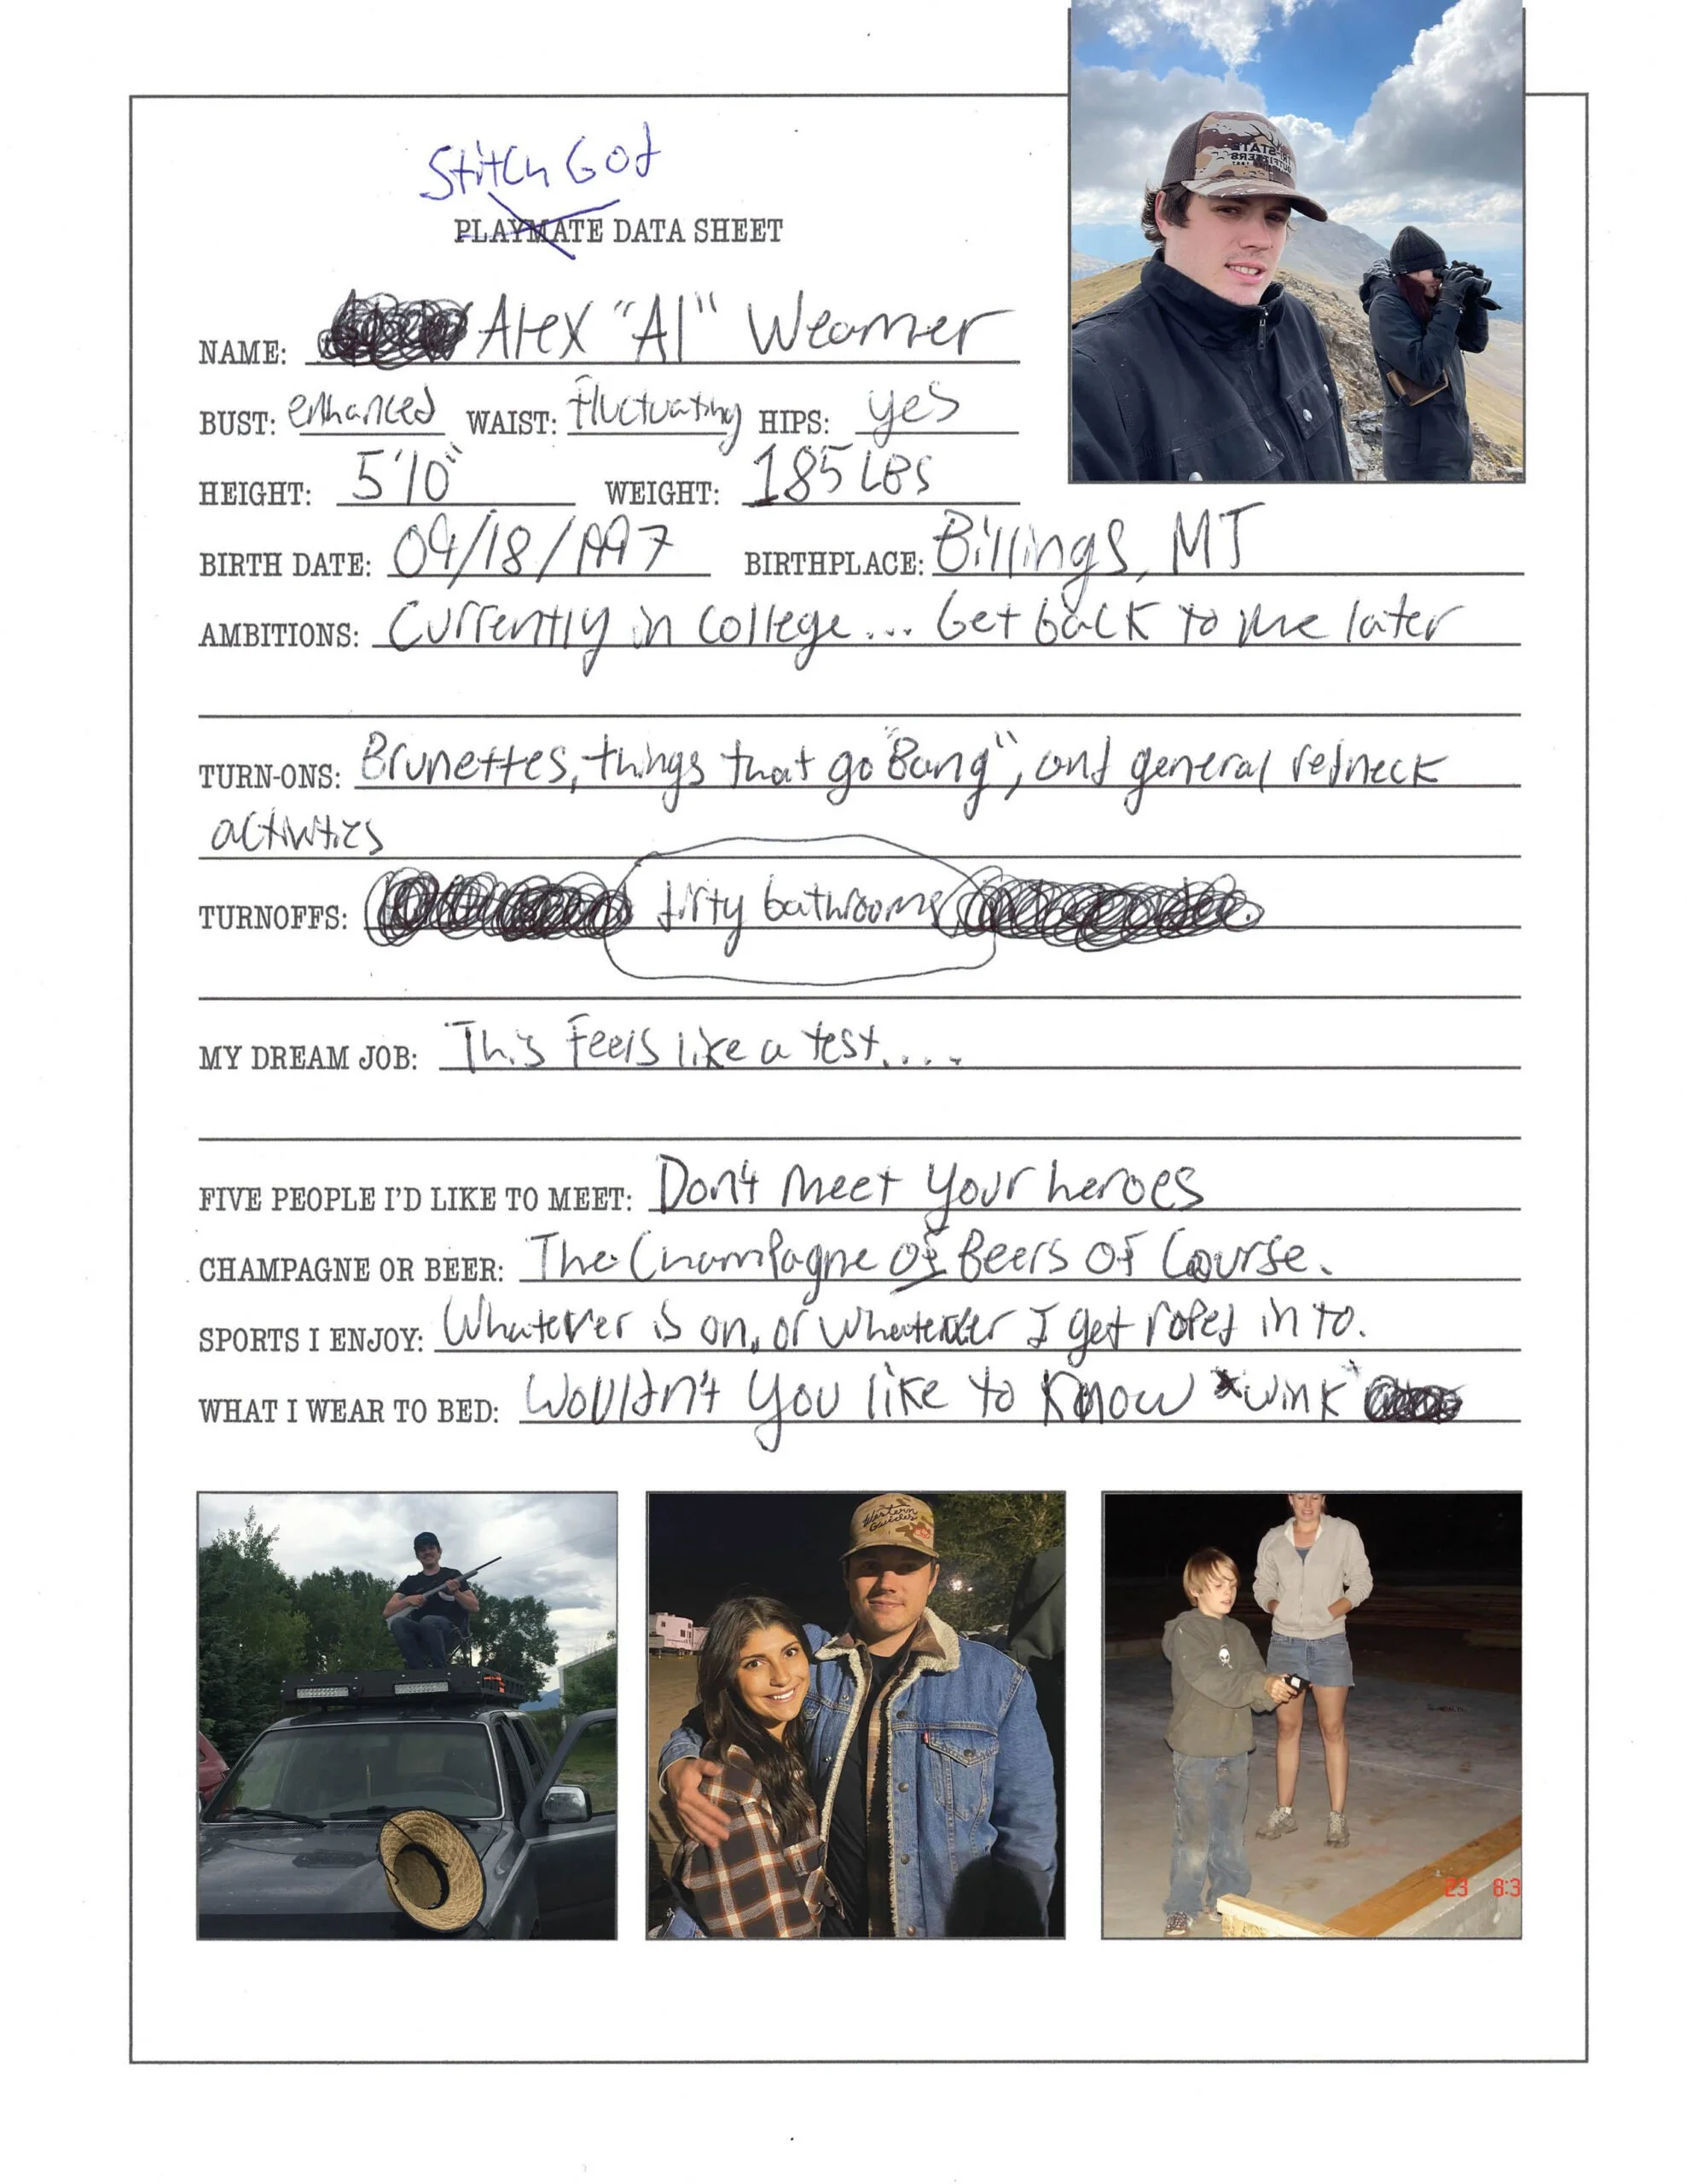 Stitch God
PLAYMATE DATA SHEET
NAME: Alex "Al" Weamer
BUST: enhanced WAIST: fluctuating HIPS: yes
HEIGHT: 5'10" WEIGHT: 185 LBS
BIRTH DATE: 09/18/1997 BIRTHPLACE: Billings, MT
AMBITIONS: Currently in college... Get back to me later
TURN-ONS: Brunettes, things that go "Bang", and general redneck
activities
TURNOFFS: dirty bathrooms
MY DREAM JOB: This feels like a test....
FIVE PEOPLE I'D LIKE TO MEET: Don't meet your heroes
CHAMPAGNE OR BEER: The Champagne of Beers of Course.
SPORTS I ENJOY: Whatever is on, or whatever I get roped in to.
WHAT I WEAR TO BED: Wouldn't you like to know *wink*
Western
Guides
23 6:3